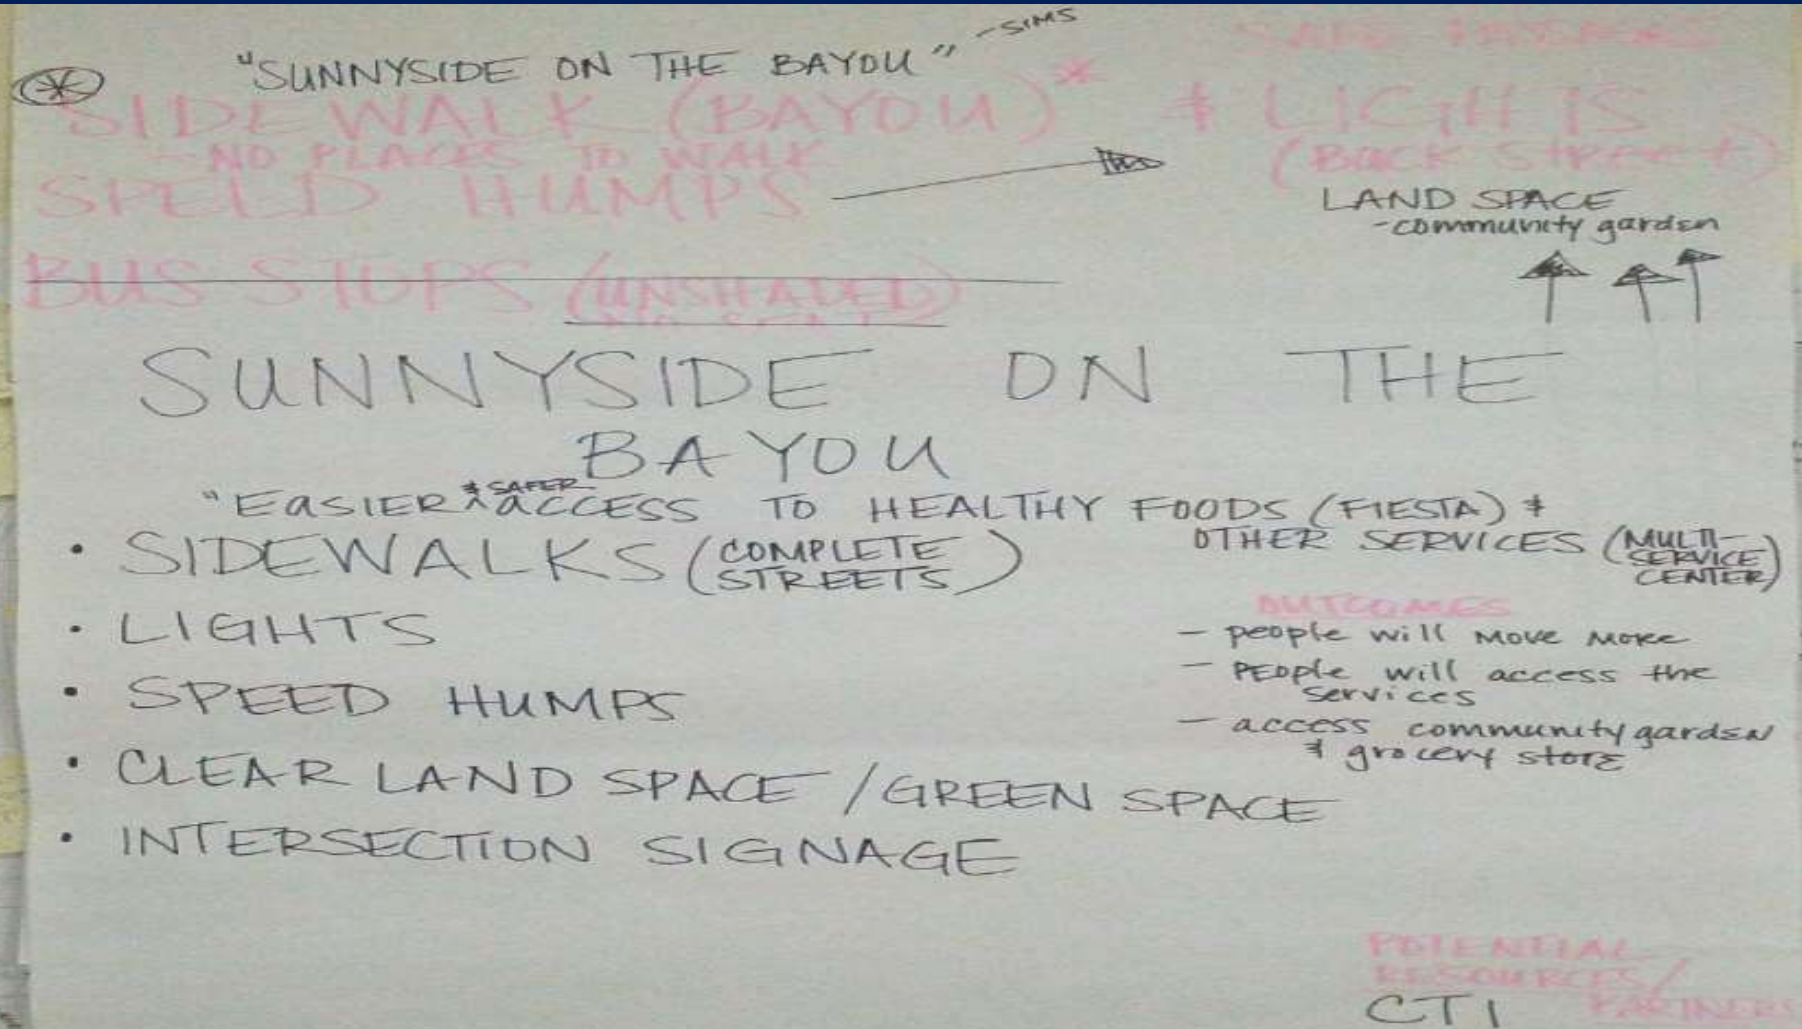 "SUNNYSIDE ON THE BAYOU" -SIMS
SIDEWALK (BAYOU)* & LIGHTS
- NO PLACES TO WALK
(BACK STREET)
SPEED HUMPS
LAND SPACE
- community garden
BUS STOPS (UNSHADED)
SUNNYSIDE ON THE
BAYOU
"EASIER & SAFER ACCESS TO HEALTHY FOODS (FIESTA) &
OTHER SERVICES (MULTI-
SERVICE
CENTER)
• SIDEWALKS (COMPLETE
STREETS)
• LIGHTS
• SPEED HUMPS
• CLEAR LAND SPACE / GREEN SPACE
• INTERSECTION SIGNAGE
OUTCOMES
- people will move more
- People will access the
services
- access community garden
& grocery store
POTENTIAL
RESOURCES/
PARTNERS
CTI